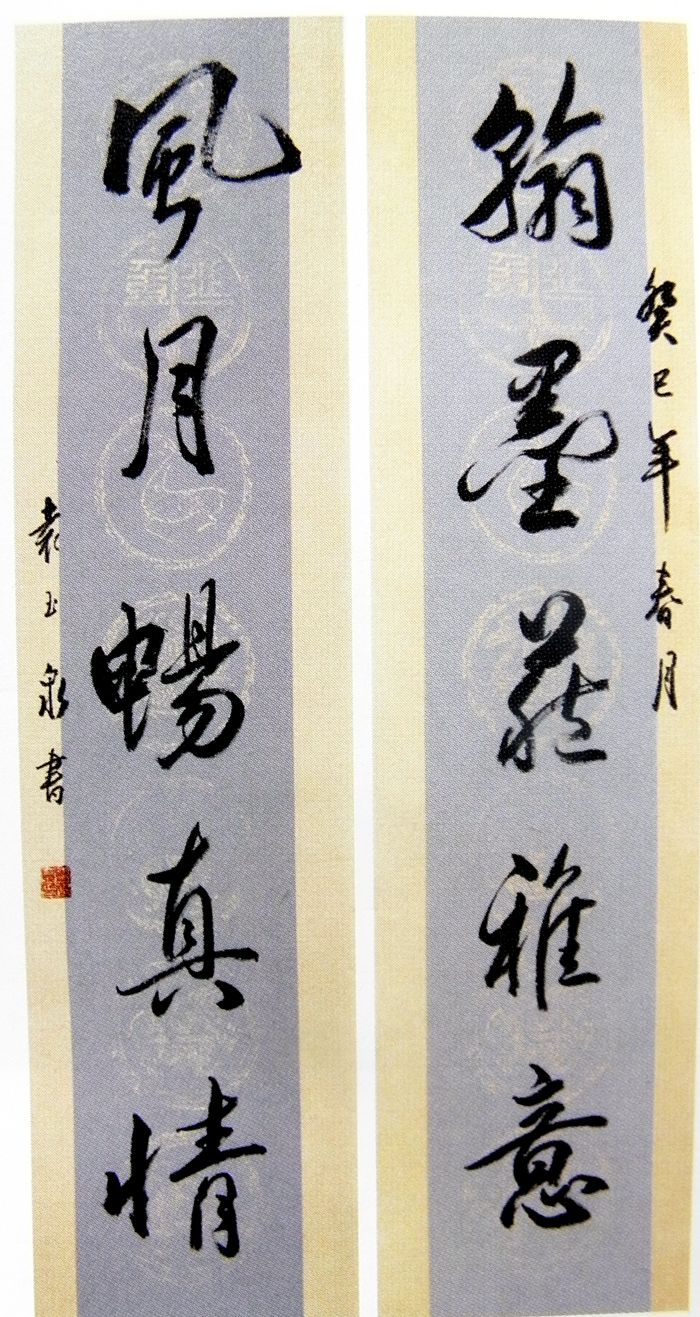 癸巳年春月
翰墨雅意
風月暢真情
袁玉泉書